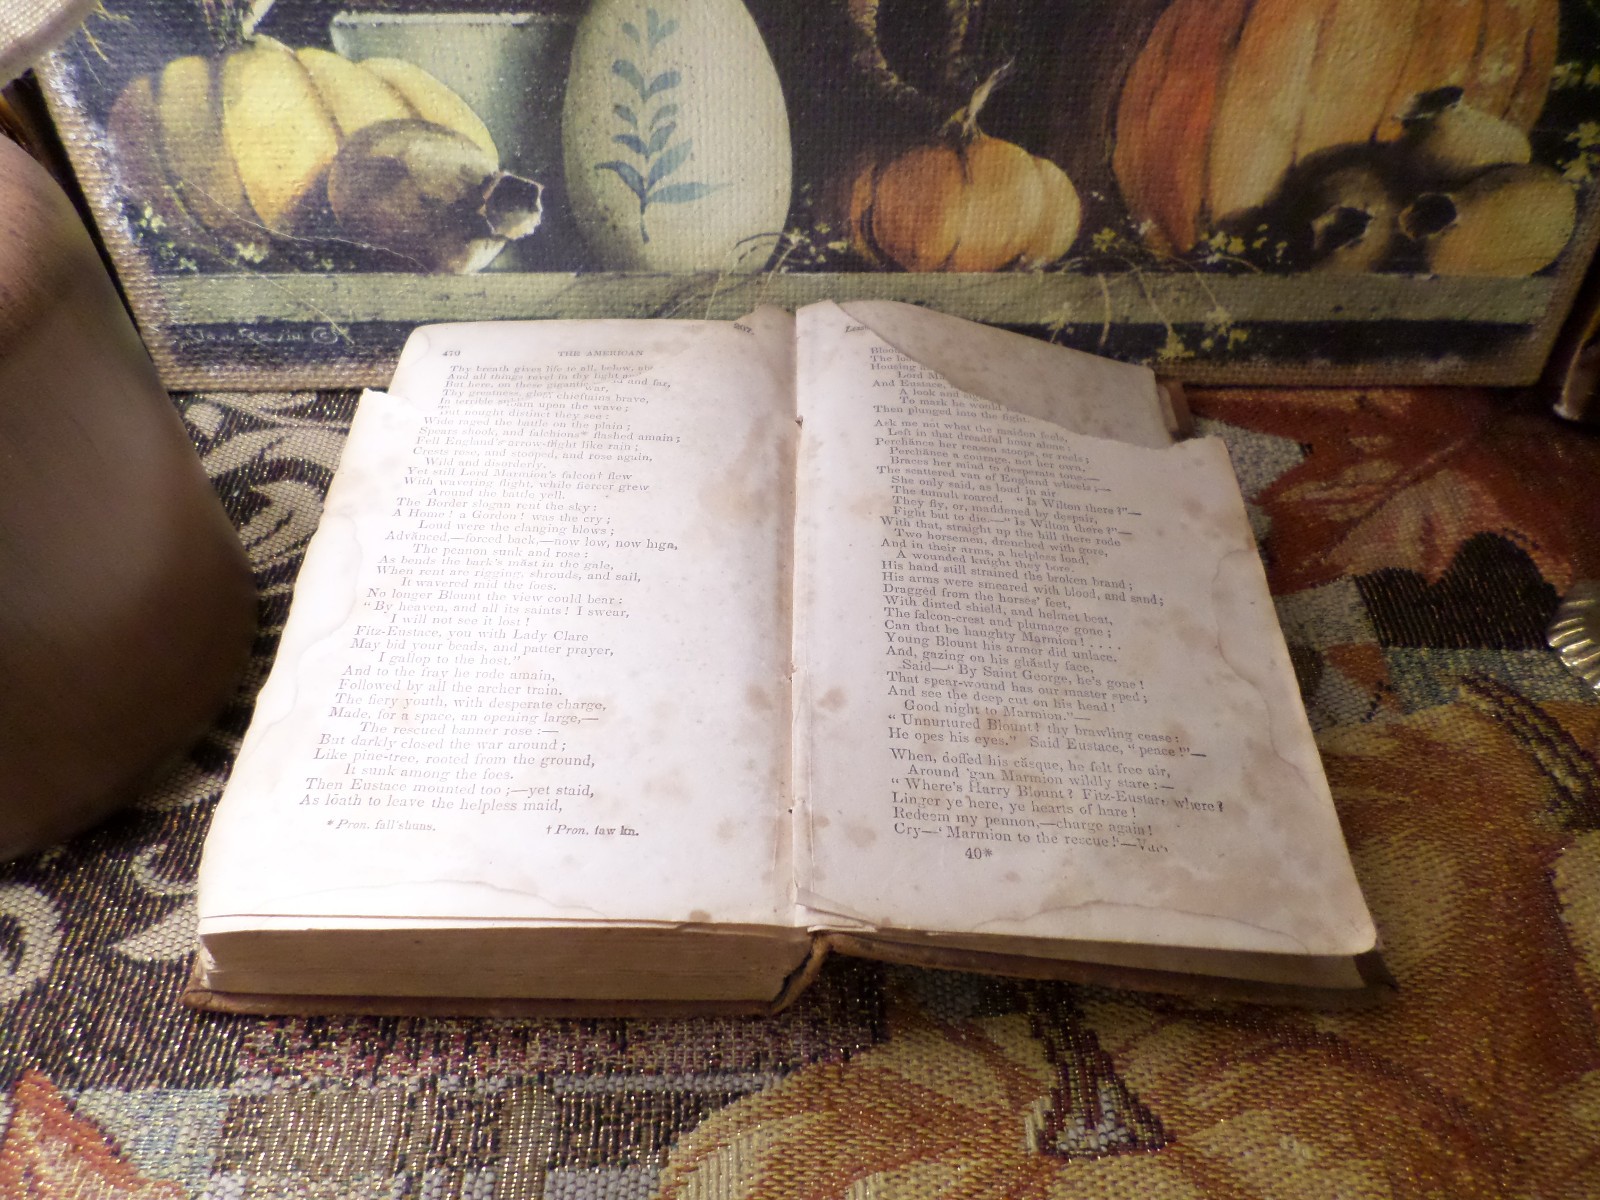 470
THE AMERICAN
Thy breath gives life to all, below,
And all things revel in thy light
But here, on these gigantic and far,
war,
Thy greatness, glory chieftains brave,
In terrible upon the wave;
nought distinct they see:
Wide raged the battle on the plain;
Spears shook, and falchions* flashed amain;
Fell England's arrow-flight like rain;
Crests rose, and stooped, and rose again,
Wild and disorderly.
Yet still Lord Marmion's falcon† flew
With wavering flight, while fiercer grew
Around the battle yell.
The Border slogan rent the sky:
A Home! a Gordon! was the cry;
Loud were the clanging blows;
Advānced,—forced back,—now low, now high,
The pennon sunk and rose:
As bends the bark's māst in the gale,
When rent are rigging, shrouds, and sail,
It wavered mid the foes.
No longer Blount the view could bear:
"By heaven, and all its saints! I swear,
I will not see it lost!
Fitz-Eustace, you with Lady Clare
May bid your beads, and patter prayer,
I gallop to the host."
And to the fray he rode amain,
Followed by all the archer train.
The fiery youth, with desperate charge,
Made, for a space, an opening large,—
The rescued banner rose:—
But darkly closed the war around;
Like pine-tree, rooted from the ground,
It sunk among the foes.
Then Eustace mounted too;—yet staid,
As lōath to leave the helpless maid,
* Pron. fall'shuns.
† Pron. faw kn.
Housing
Lord
And Eustace,
A look and
To mark he would
Then plunged into the fight.
Ask me not what the maiden feels,
Left in that dreadful hour alone:
Perchānce her reason stoops, or reels;
Perchānce a courage, not her own,
Braces her mind to desperate tone.—
The scattered van of England wheels;—
She only said, as loud in air
The tumult roared, "Is Wilton there?"—
They fly, or, maddened by despair,
Fight but to die.—"Is Wilton there?"—
With that, straight up the hill there rode
Two horsemen, drenched with gore,
And in their arms, a helpless load,
A wounded knight they bore.
His hand still strained the broken brand;
His arms were smeared with blood, and sand;
Dragged from the horses' feet,
With dinted shield, and helmet beat,
The falcon-crest and plumage gone;
Can that be haughty Marmion! . . . .
Young Blount his armor did unlace,
And, gazing on his ghāstly face,
Said—"By Saint George, he's gone!
That spear-wound has our master sped;
And see the deep cut on his head!
Good night to Marmion."—
"Unnurtured Blount! thy brawling cease:
He opes his eyes." Said Eustace, "peace!"—
When, doffed his cāsque, he felt free air,
Around 'gan Marmion wildly stare:—
"Where's Harry Blount? Fitz-Eustace where?
Linger ye here, ye hearts of hare!
Redeem my pennon,—charge again!
Cry—'Marmion to the rescue!'—
40*